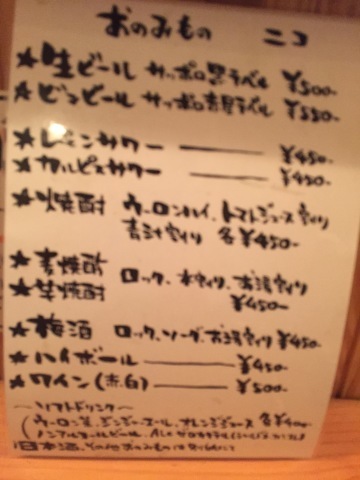 おのみもの ニコ
★生ビール サッポロ黒ラベル ¥500-
★ビンビール サッポロ黒ラベル ¥550-
★レモンサワー ―― ¥450-
★カルピスサワー ―― ¥450-
★焼酎 ウーロンハイ、トマトジュース割り
青汁割り 各¥450-
★麦焼酎 ロック、水割り、お湯割り
★芋焼酎 ¥450-
★梅酒 ロック、ソーダ、お湯割り ¥450-
★ハイボール ―― ¥450-
★ワイン(赤、白) ―― ¥500-
〜ソフトドリンク〜
ウーロン茶、ジンジャーエール、オレンジジュース 各¥400-
ノンアルコールビール、ALC ゼロカクテル
日本酒、その他おのみもの